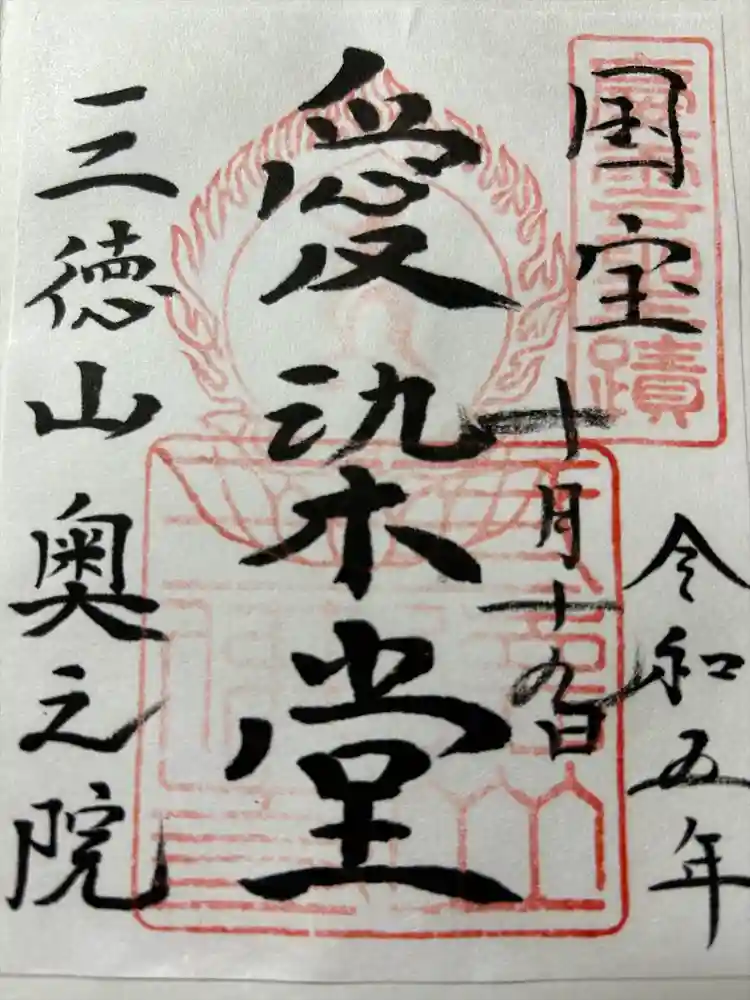 国宝
令和五年
十月十九日
愛染堂
三徳山奥之院